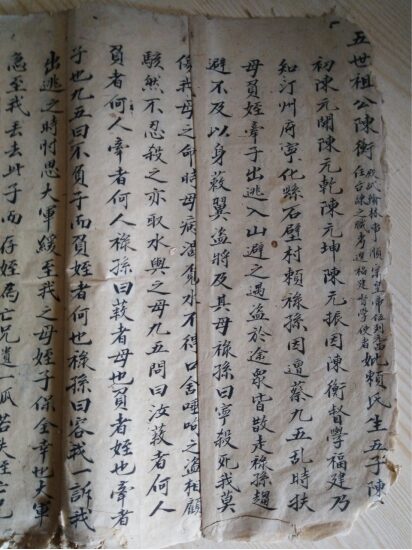 五世祖公陳衡
任台諫之職考選福建督學使者
妣賴氏生五子陳
初陳元開陳元乾陳元坤陳元振因陳衡督學福建乃
知汀州府寧化縣石壁村賴祿孫因遭蔡九五亂時扶
母負姪牽子出逃入山避之遇盜於途眾皆散走祿孫趨
避不及以身蔽翼盜將及其母祿孫曰寧殺死我莫
傷我母之命時母病渴覓水不得口含唾之盜相顧
駭然不忍殺之亦取水與之母九五問曰汝蔽者何人
負者何人牽者何人祿孫曰蔽者母也負者姪也牽者
子也九五曰不負子而負姪者何也祿孫曰容我一訴我
出逃之時忖思大軍緩至我之母姪子保全幸也大軍
急至我丟去此子而存姪為亡兄遺一瓜若失